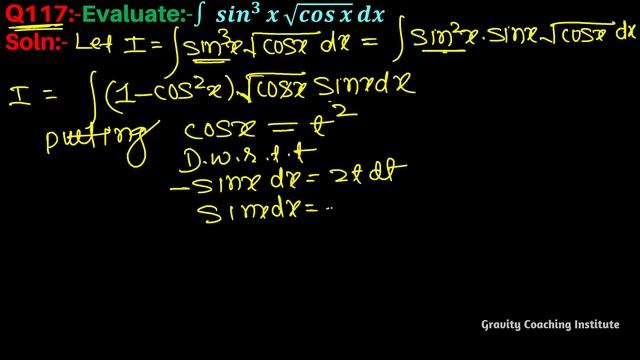 Q117:-Evaluate:-∫ sin³ x √cos x dx
Soln:- Let I = ∫ sin³x √cosx dx = ∫ sin²x · sinx √cosx dx
I = ∫ (1 - cos²x) √cosx sinx dx
putting cosx = t²
D.w.r.t.t
- sinx dx = 2t dt
sinx dx = -
Gravity Coaching Institute